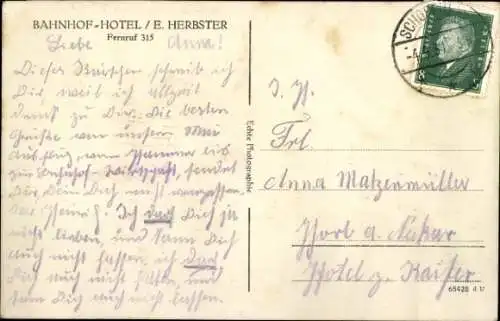 BAHNHOF-HOTEL / E. HERBSTER
Fernruf 315
Liebe Anna!
Dieses Kärtchen schreib ich
Dir, weil ich allzeit
denk zu Dir. Die besten
Grüße von unserm Mai
Ausflug, vom Hammer bis
zur Bahnhof-Wirtschaft, sendet
Dir, Dein Dich nicht vergessen
Ich darf Dich ja
nicht lieben, und kann Dich
auch nicht hassen, ich darf
Dich auch nicht
kann Dich auch nicht lassen.
Echte Photographie
SCHO
I. H.
Frl.
Anna Matzenmüller
Horb a. Neckar
Hotel z. Kaiser
65428 d U